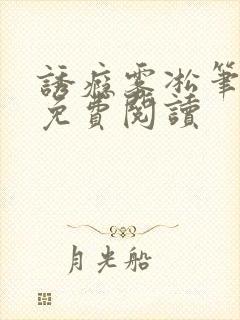 誘癮霧凇筆
免費閱讀
月光船